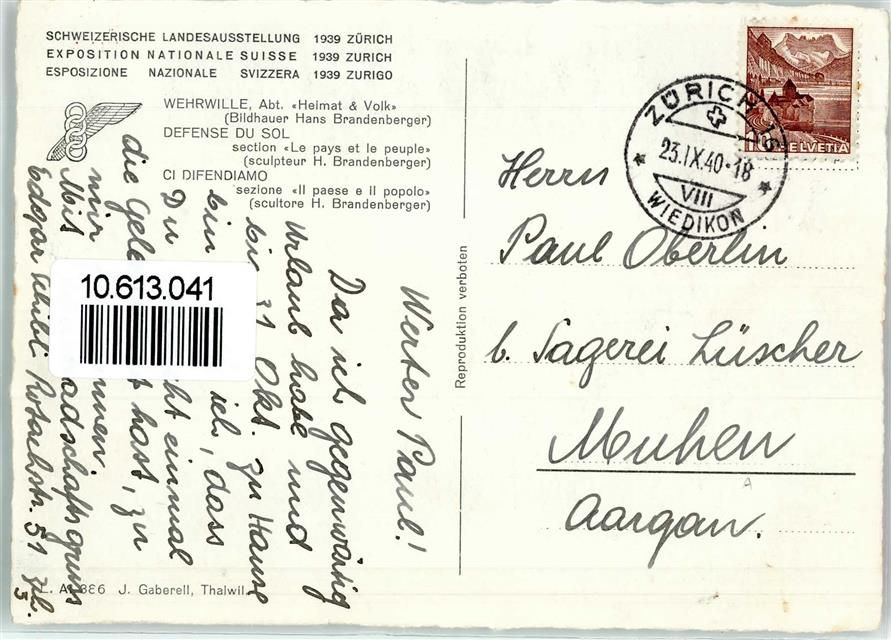 SCHWEIZERISCHE LANDESAUSSTELLUNG 1939 ZÜRICH
EXPOSITION NATIONALE SUISSE 1939 ZURICH
ESPOSIZIONE NAZIONALE SVIZZERA 1939 ZURIGO
WEHRWILLE, Abt. «Heimat & Volk»
(Bildhauer Hans Brandenberger)
DEFENSE DU SOL
section «Le pays et le peuple»
(sculpteur H. Brandenberger)
CI DIFENDIAMO
sezione «Il paese e il popolo»
(scultore H. Brandenberger)
Werter Paul!
Da ich gegenwärtig
Urlaub habe und
bis 31 Okt. zu Hause
bin ich, dass
Du einmal
die Gele hast, zu
mir
Mit adschaftsgruss
Edgar Rotachstr. 51 Zh.
3
10.613.041
A. 386 J. Gaberell, Thalwil
Reproduktion verboten
HELVETIA
ZÜRICH 16
23.IX.40-18
VIII
WIEDIKON
Herrn
Paul Oberlin
b. Sagerei Lüscher
Muhen
Aargau.